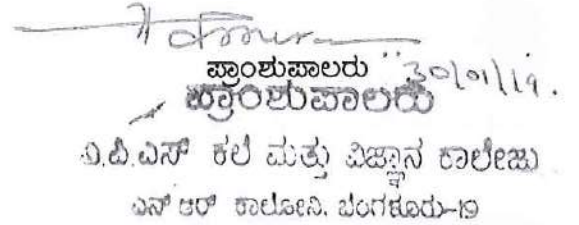 ಪ್ರಾಂಶುಪಾಲರು 30/01/19.
ಪ್ರಾಂಶುಪಾಲರು
ಎ.ಪಿ.ಎಸ್ ಕಲೆ ಮತ್ತು ವಿಜ್ಞಾನ ಕಾಲೇಜು
ಎನ್ ಆರ್ ಕಾಲೋನಿ, ಬೆಂಗಳೂರು-19